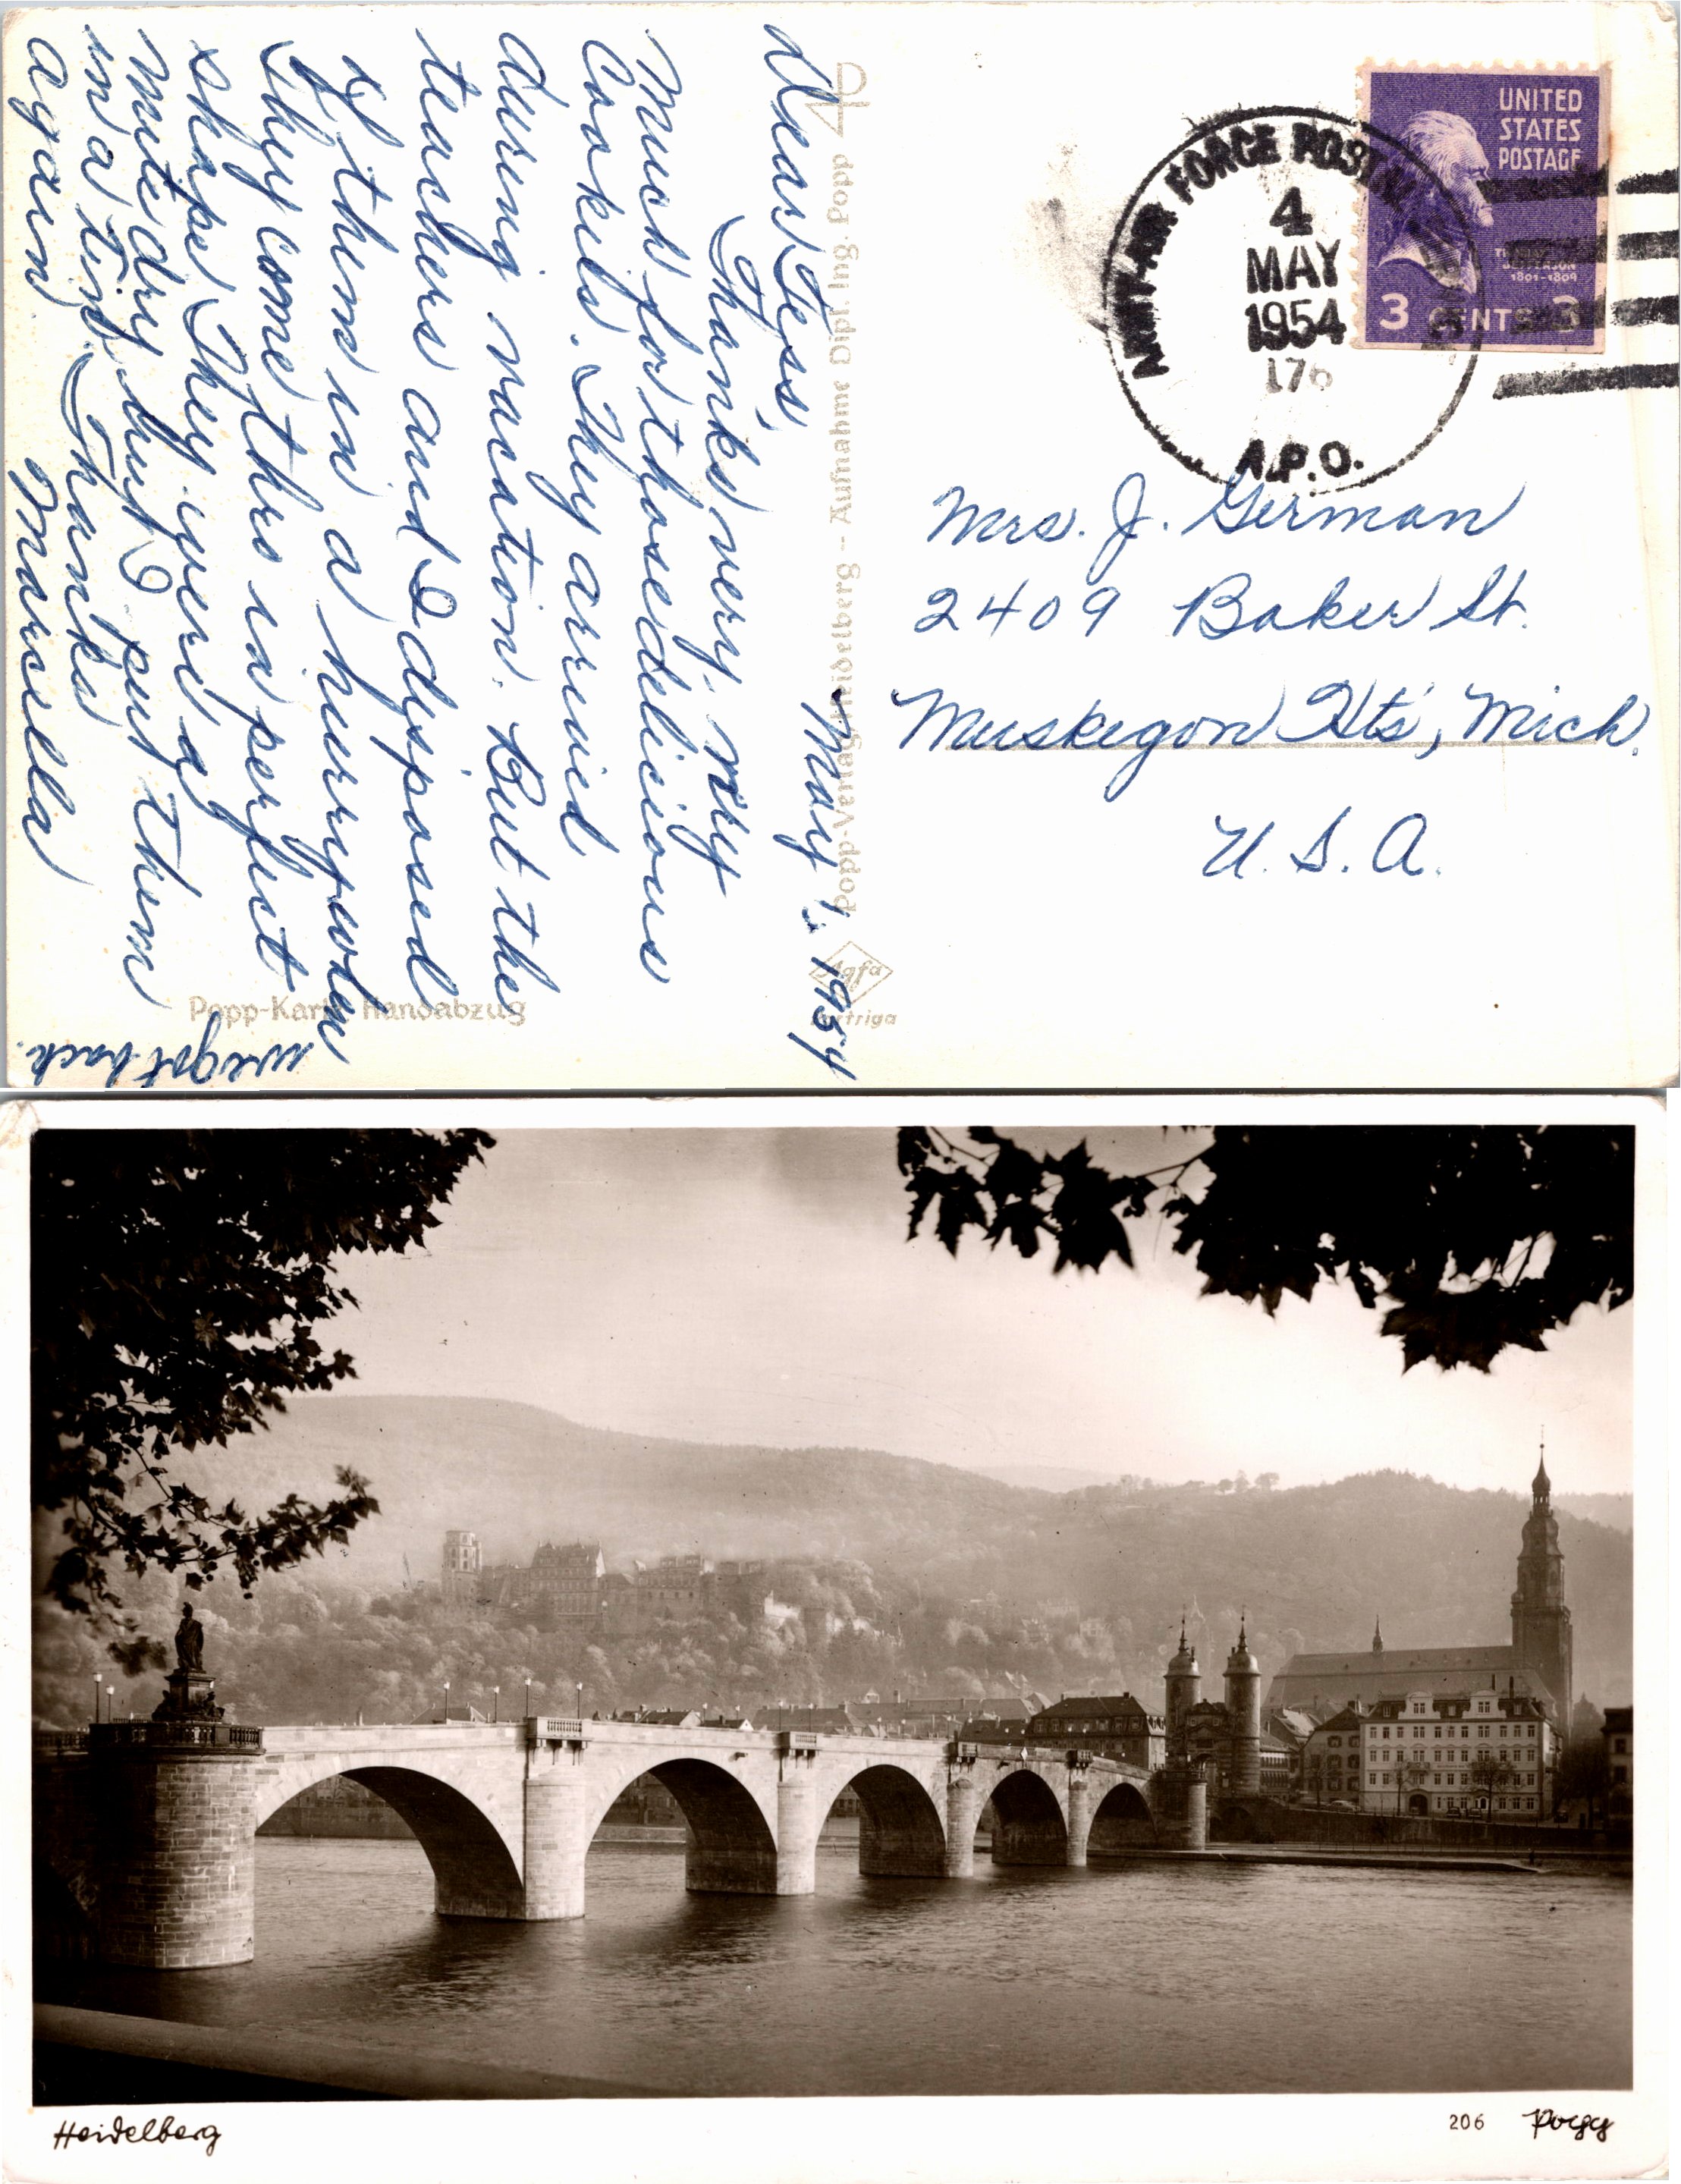 May 1, 1954
Dear Tess,
Thanks very, very
much for those delicious
Cookies. They arrived
during vacation. But the
teachers and I disposed
of them in a hurry when
we got back.
They come thru in perfect
shape. They were a
mite dry but I put them
in a tin. Thanks
again.
Marcella
Popp-Verlag Heidelberg - Aufnahme Dipl. Ing. Popp
Popp-Karte Handabzug
Agfa
Portriga
UNITED
STATES
POSTAGE
THOMAS
JEFFERSON
1801-1809
3 CENTS 3
ARMY-AIR FORCE POSTAL
4
MAY
1954
176
A.P.O.
Mrs. J. German
2409 Baker St.
Muskegon Hts, Mich.
U. S. A.
Heidelberg
206 Popp